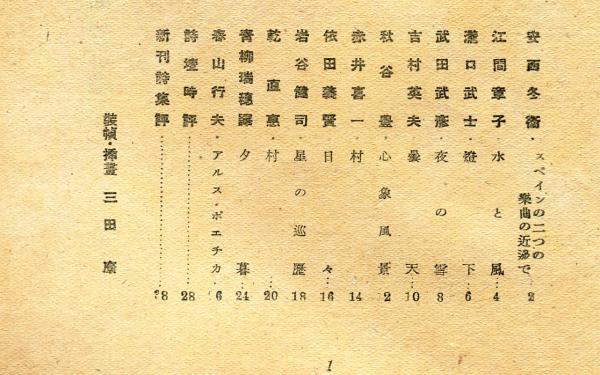 安西冬衞・スペインの二つの樂曲の近傍で…2
江間章子・水と風…4
瀧口武士・燈下…6
武田武彦・夜の雪…8
吉村英夫・曇天…10
秋谷豊・心象風景…2
赤井喜一・村…14
依田義賢・日々…16
岩谷健司・星の巡歷…18
乾直惠・村…20
青柳瑞穗譯・夕暮…24
春山行夫・アルス・ポエチカ…6
詩壇時評…28
新刊詩集評…38
裝幀・揷畫 三田康
1